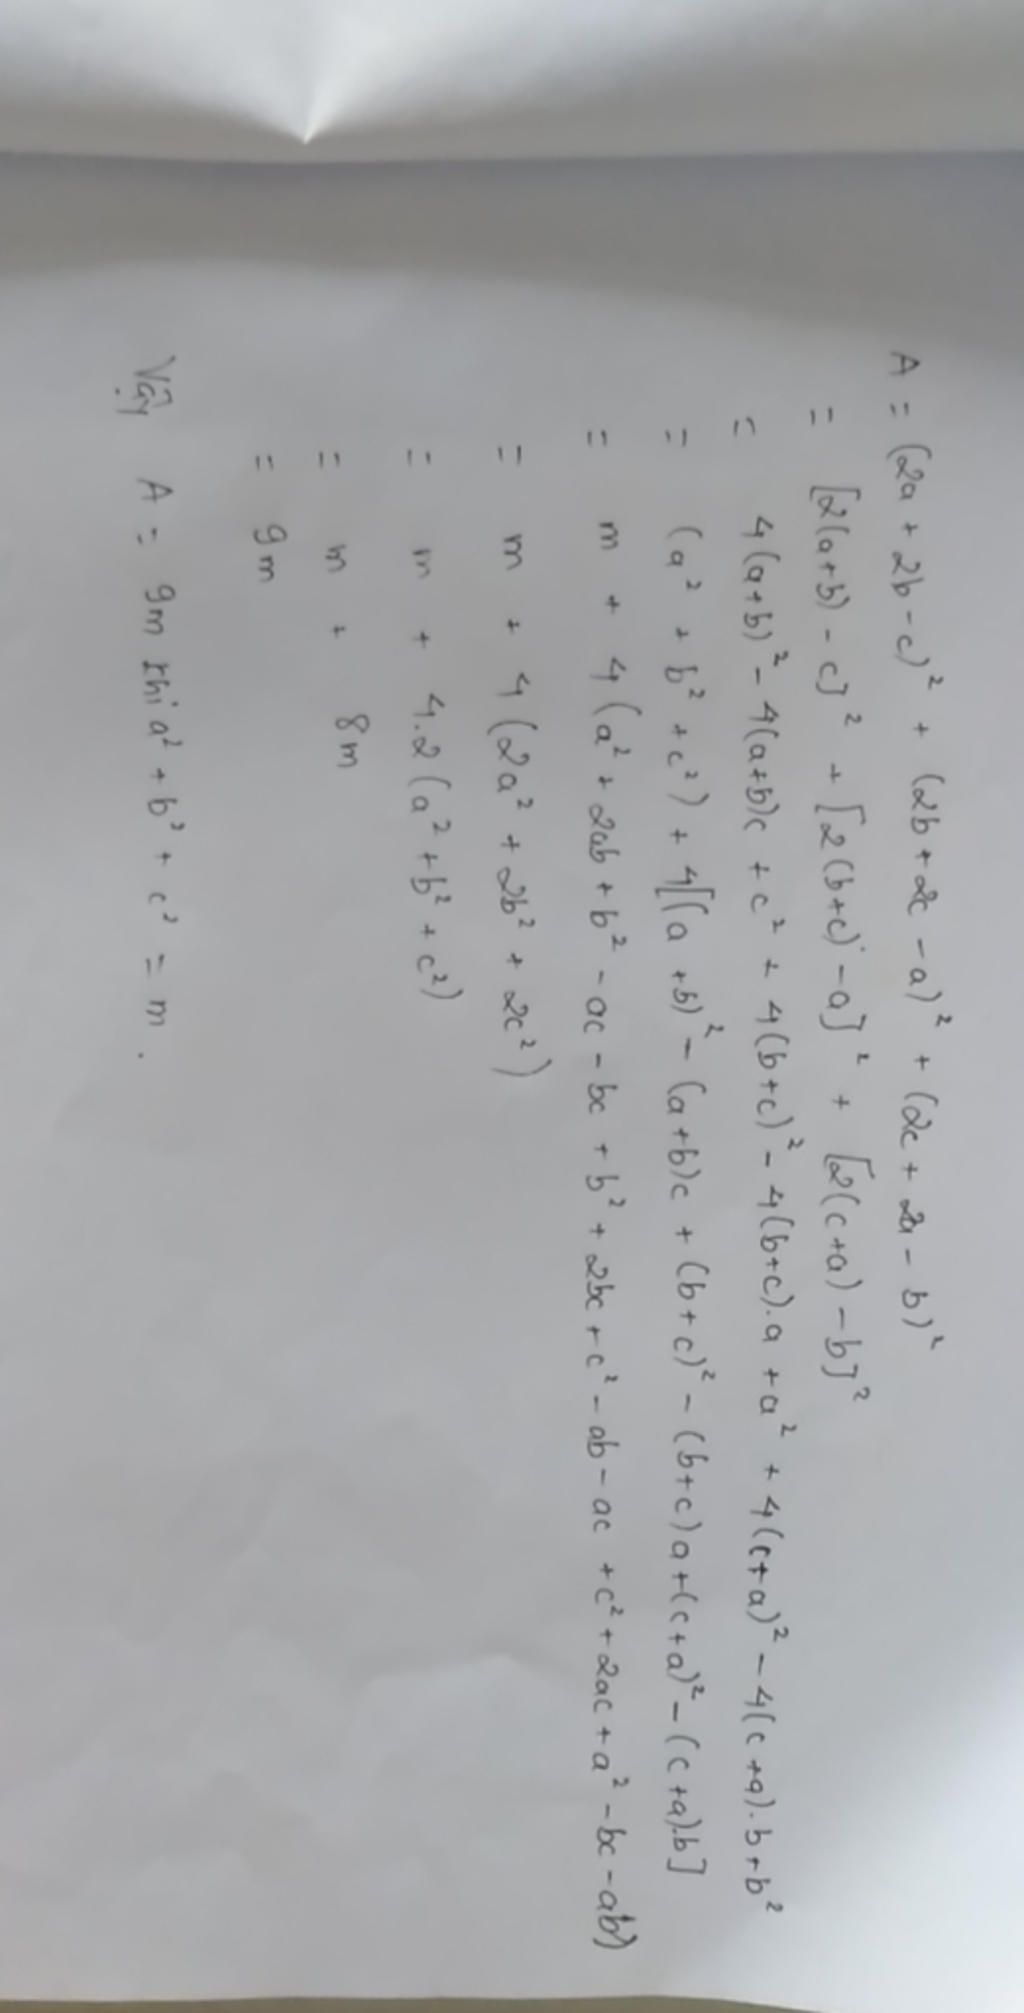 A = (2a + 2b - c)² + (2b + 2c - a)² + (2c + 2a - b)²
= [2(a+b) - c]² + [2(b+c) - a]² + [2(c+a) - b]²
= 4(a+b)² - 4(a+b)c + c² + 4(b+c)² - 4(b+c).a + a² + 4(c+a)² - 4(c+a).b + b²
= (a² + b² + c²) + 4[(a+b)² - (a+b)c + (b+c)² - (b+c)a + (c+a)² - (c+a).b]
= m + 4(a² + 2ab + b² - ac - bc + b² + 2bc + c² - ab - ac + c² + 2ac + a² - bc - ab)
= m + 4(2a² + 2b² + 2c²)
= m + 4.2(a² + b² + c²)
= m + 8m
= 9m
Vậy A = 9m khi a² + b² + c² = m.